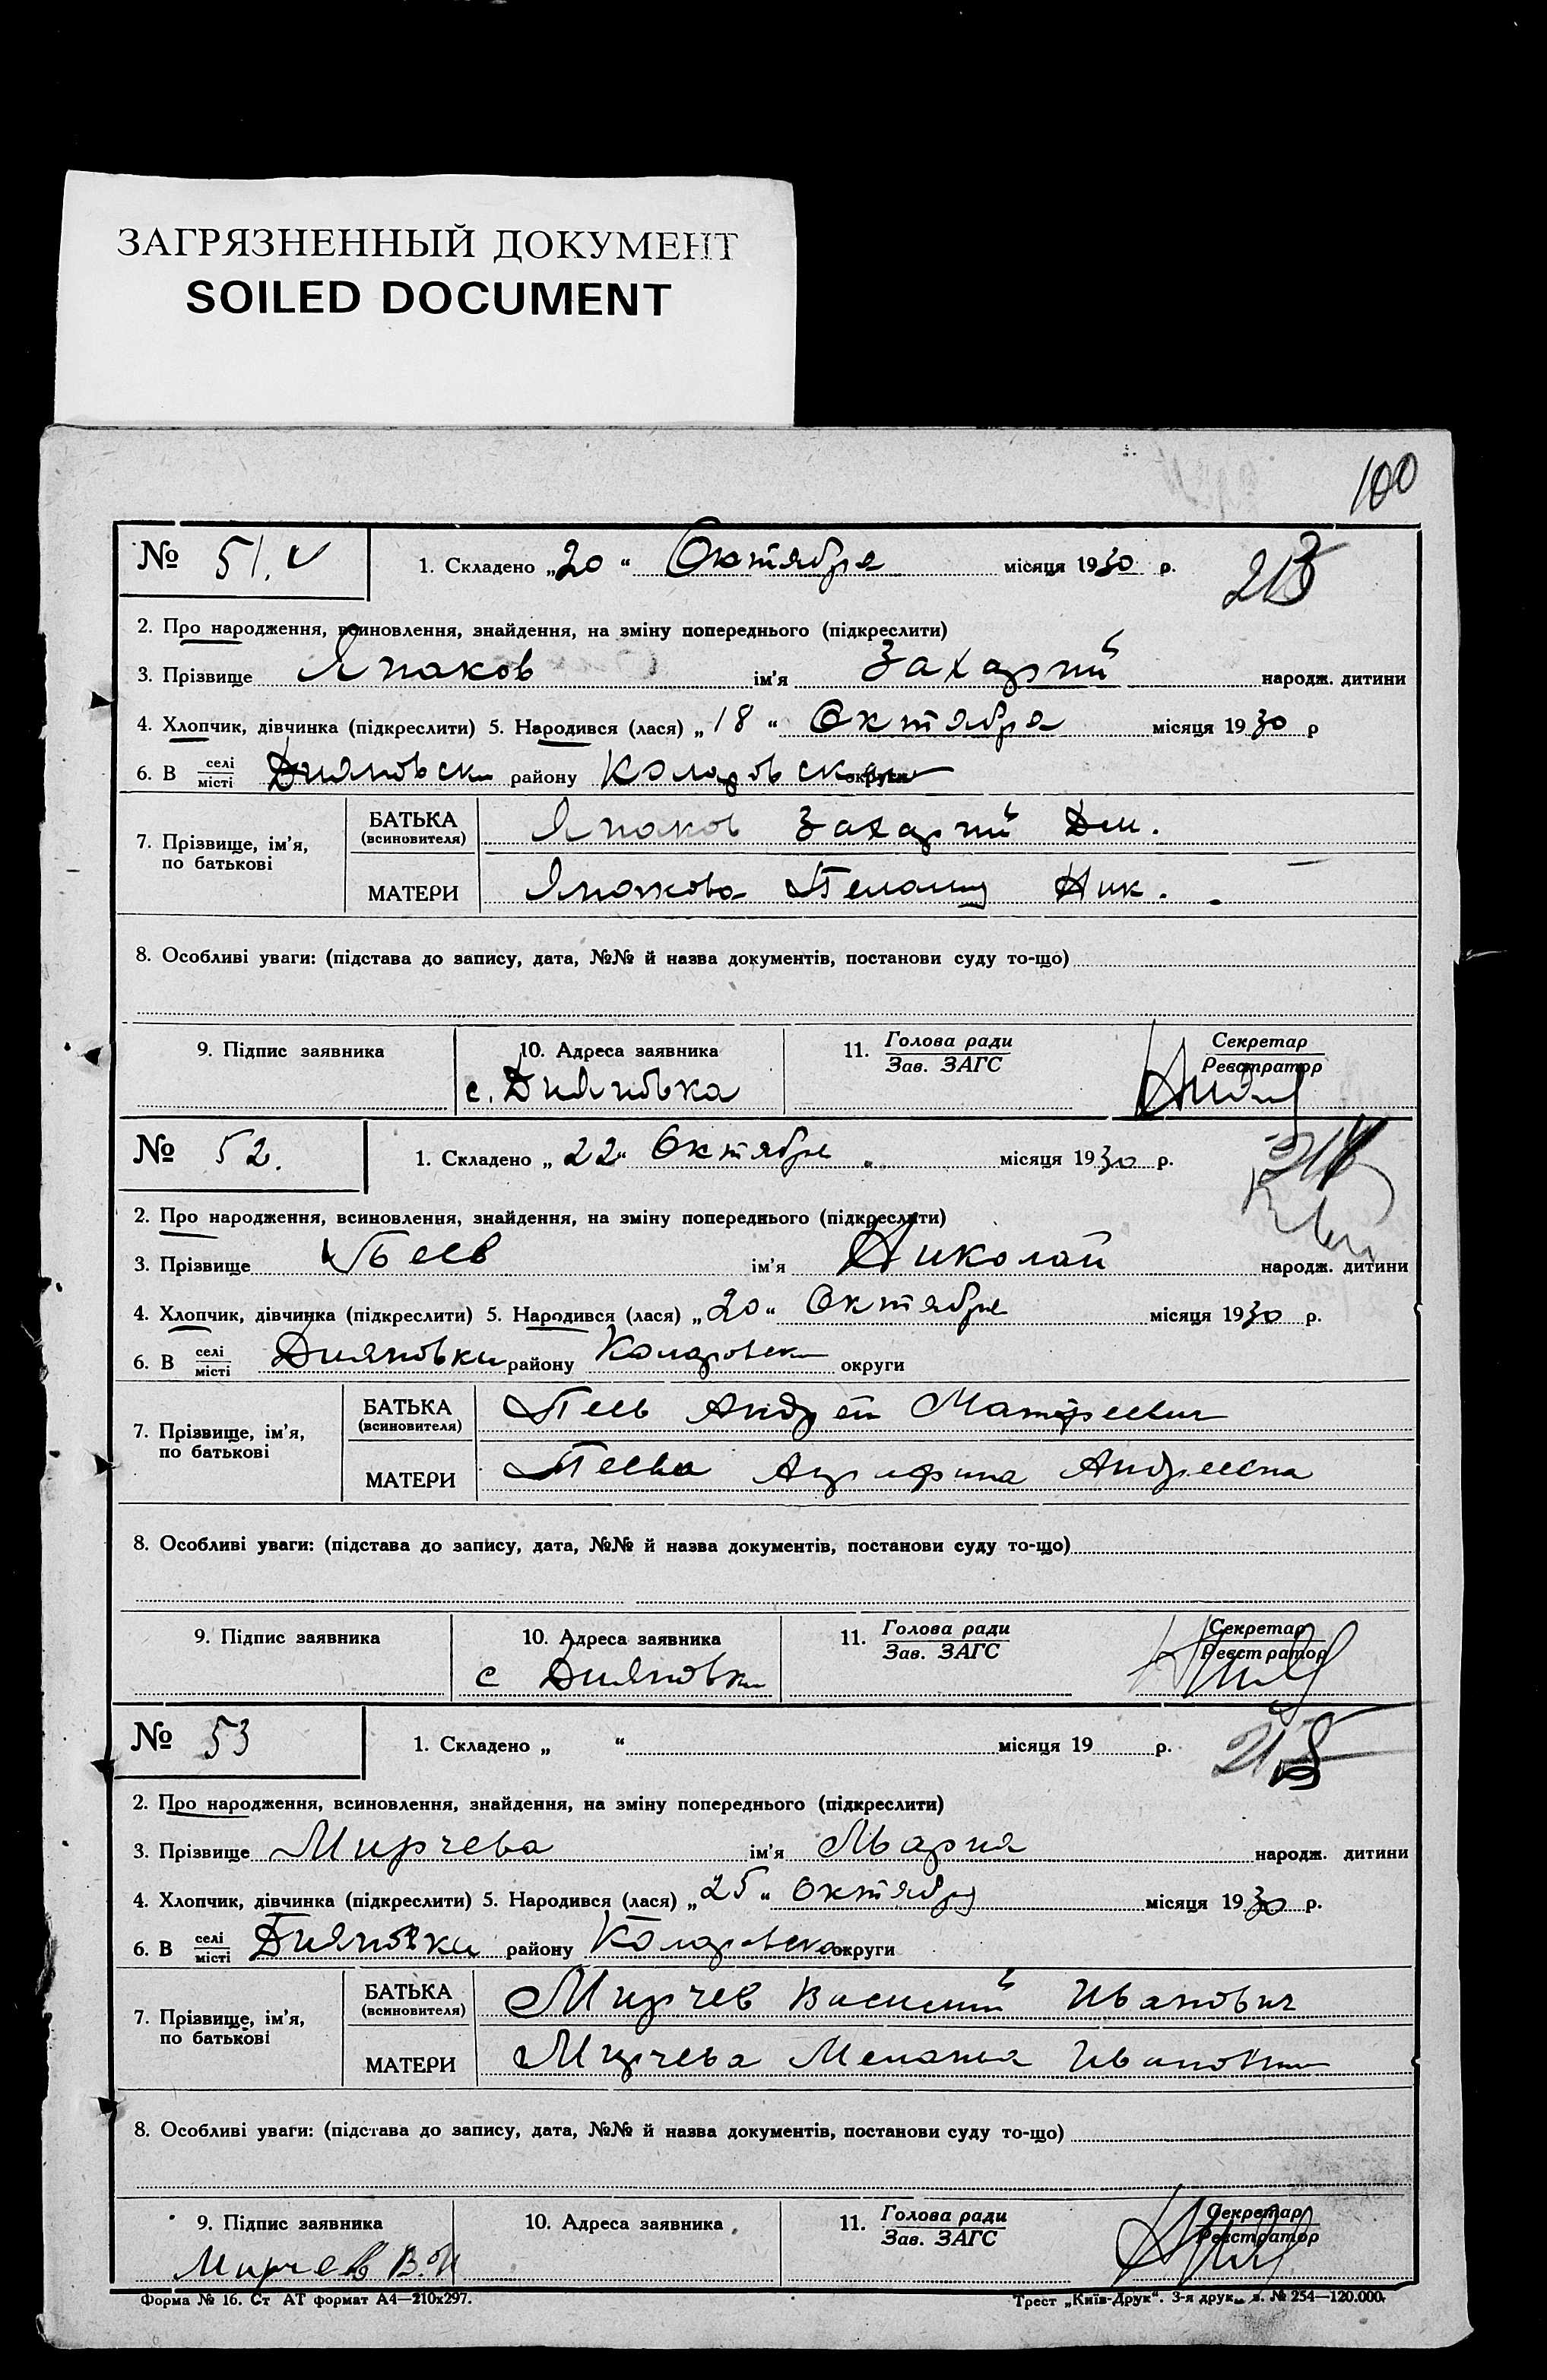 ЗАГРЯЗНЕННЫЙ ДОКУМЕНТ
SOILED DOCUMENT
100
№ 51. 1. Складено „20“ Октября місяця 1930 р.
2. Про народження, всиновлення, знайдення, на зміну попереднього (підкреслити)
3. Прізвище Япаков ім'я Захарий народж. дитини
4. Хлопчик, дівчинка (підкреслити) 5. Народився (лася) „18“ Октября місяця 1930 р
6. В селі місті Дияновски району Коларовск округи
7. Прізвище, ім'я, по батькові
БАТЬКА (всиновителя) Япаков Захарий Дм.
МАТЕРИ Япакова Ник.
8. Особливі уваги: (підстава до запису, дата, №№ й назва документів, постанови суду то-що)
9. Підпис заявника 10. Адреса заявника 11. Голова ради Зав. ЗАГС Секретар Реєстратор
с. Дияновка
№ 52. 1. Складено „22“ Октября місяця 1930 р.
2. Про народження, всиновлення, знайдення, на зміну попереднього (підкреслити)
3. Прізвище Пеев ім'я Николай народж. дитини
4. Хлопчик, дівчинка (підкреслити) 5. Народився (лася) „20“ Октября місяця 1930 р.
6. В селі місті Дияновки району Коларовск округи
7. Прізвище, ім'я, по батькові
БАТЬКА (всиновителя) Пеев Андрей Матфеевич
МАТЕРИ Пеева Андреевна
8. Особливі уваги: (підстава до запису, дата, №№ й назва документів, постанови суду то-що)
9. Підпис заявника 10. Адреса заявника 11. Голова ради Зав. ЗАГС Секретар Реєстратор
с Дияновки
№ 53 1. Складено „ “ місяця 19 р.
2. Про народження, всиновлення, знайдення, на зміну попереднього (підкреслити)
3. Прізвище Мирчева ім'я Мария народж. дитини
4. Хлопчик, дівчинка (підкреслити) 5. Народився (лася) „25“ Октября місяця 1930 р.
6. В селі місті Дияновки району Коларовска округи
7. Прізвище, ім'я, по батькові
БАТЬКА (всиновителя) Мирчев Василий Иванович
МАТЕРИ Мирчева Меланья Ивановна
8. Особливі уваги: (підстава до запису, дата, №№ й назва документів, постанови суду то-що)
9. Підпис заявника 10. Адреса заявника 11. Голова ради Зав. ЗАГС Секретар Реєстратор
Мирчев В. И
Форма № 16. Ст АТ формат А4—210х297. Трест „Київ-Друк“. 3-я друк. з. № 254—120.000.